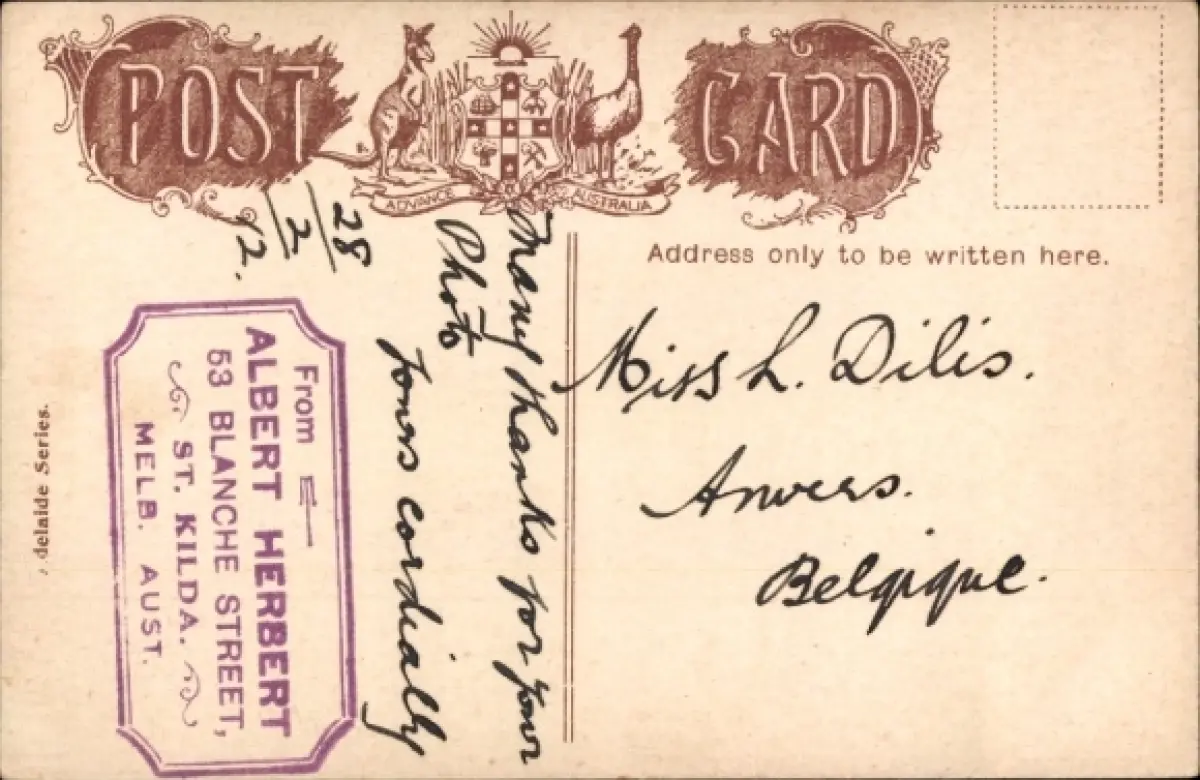 POST CARD
ADVANCE AUSTRALIA
Address only to be written here.
Miss L. Dilis.
Anvers.
Belgique.
28/2/12.
Many thanks for your
Photo
Yours cordially
From
ALBERT HERBERT
53 BLANCHE STREET,
ST. KILDA.
MELB. AUST.
delaide Series.